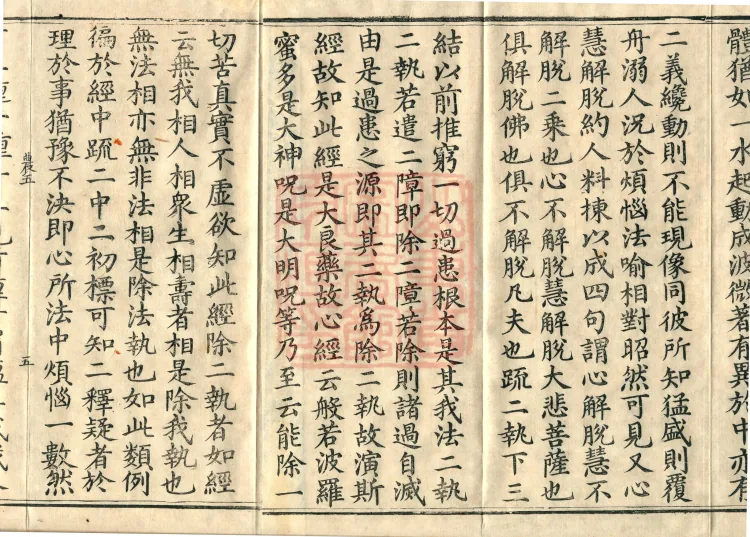 體猶如一水起動成波微著有異於中亦有
二義纔動則不能現像同彼所知猛盛則覆
舟溺人況於煩惱法喻相對昭然可見又心
慧解脫約人料揀以成四句謂心解脫慧不
解脫二乘也心不解脫慧解脫大悲菩薩也
俱解脫佛也俱不解脫凡夫也疏二執下三
結以前推窮一切過患根本是其我法二執
二執若遣二障即除二障若除則諸過自滅
由是過患之源即其二執為除二執故演斯
經故知此經是大良藥故心經云般若波羅
蜜多是大神呪是大明呪等乃至云能除一
切苦真實不虛欲知此經除二執者如經
云無我相人相衆生相壽者相是除我執也
無法相亦無非法相是除法執也如此類例
徧於經中疏二中二初標可知二釋疑者於
理於事猶豫不決即心所法中煩惱一數然
農五
五